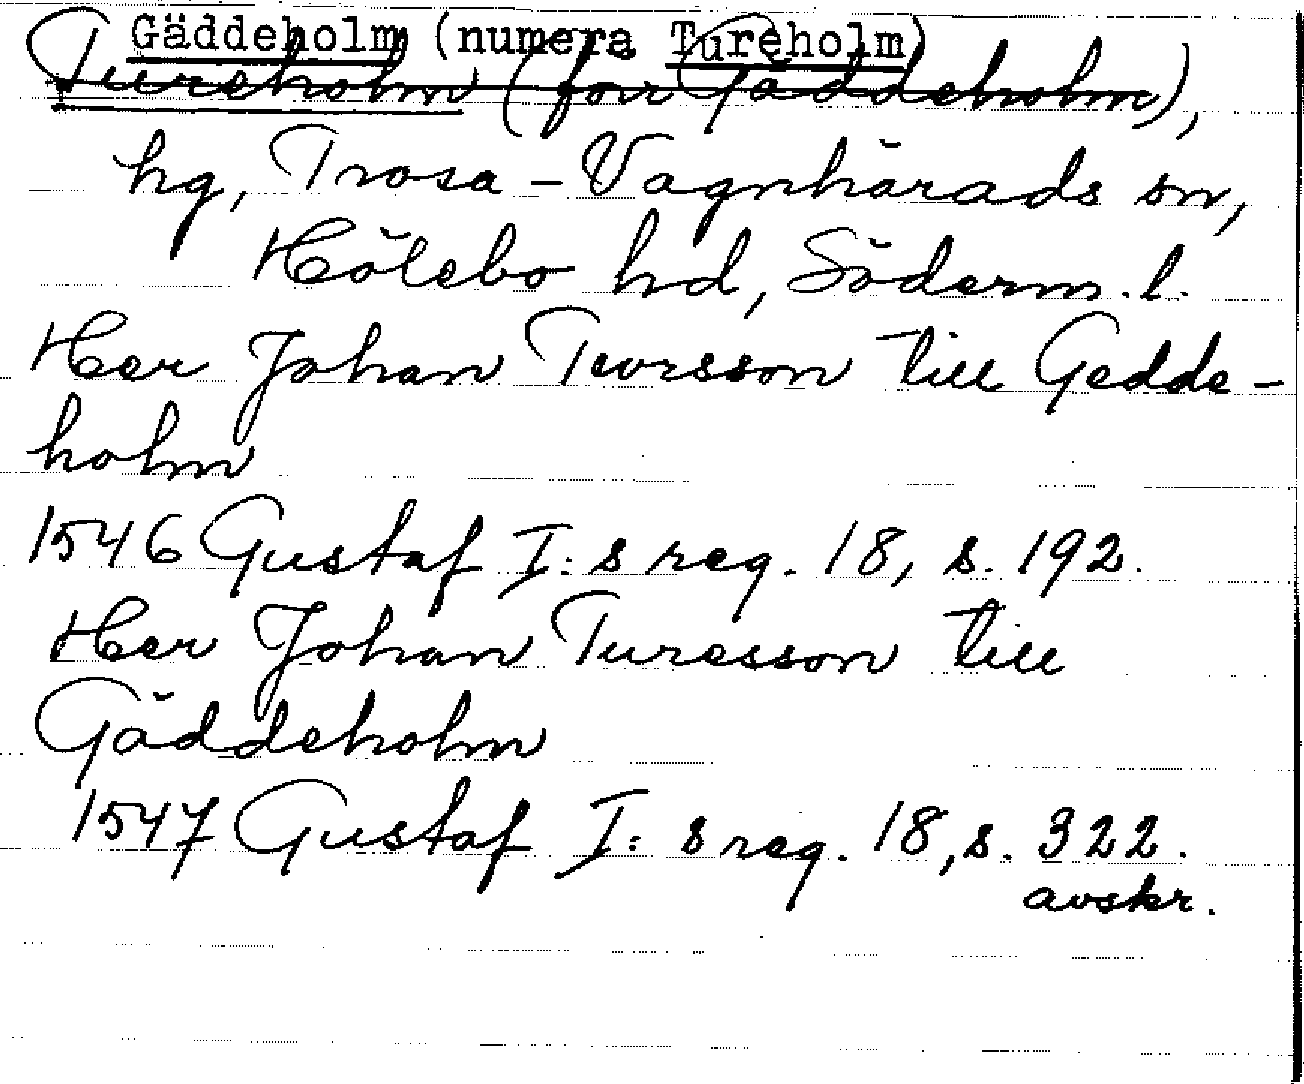 Gäddeholm (numera Tureholm)
Tureholm (förr Gäddeholm),
hg, Trosa-Vagnhärads sn,
Hölebo hd, Söderm. l.
Her Johan Tursson till Gedde-
holm
1546 Gustaf I:s reg. 18, s. 192.
Her Johan Turesson till
Gäddeholm
1547 Gustaf I:s reg. 18, s. 322.
avskr.